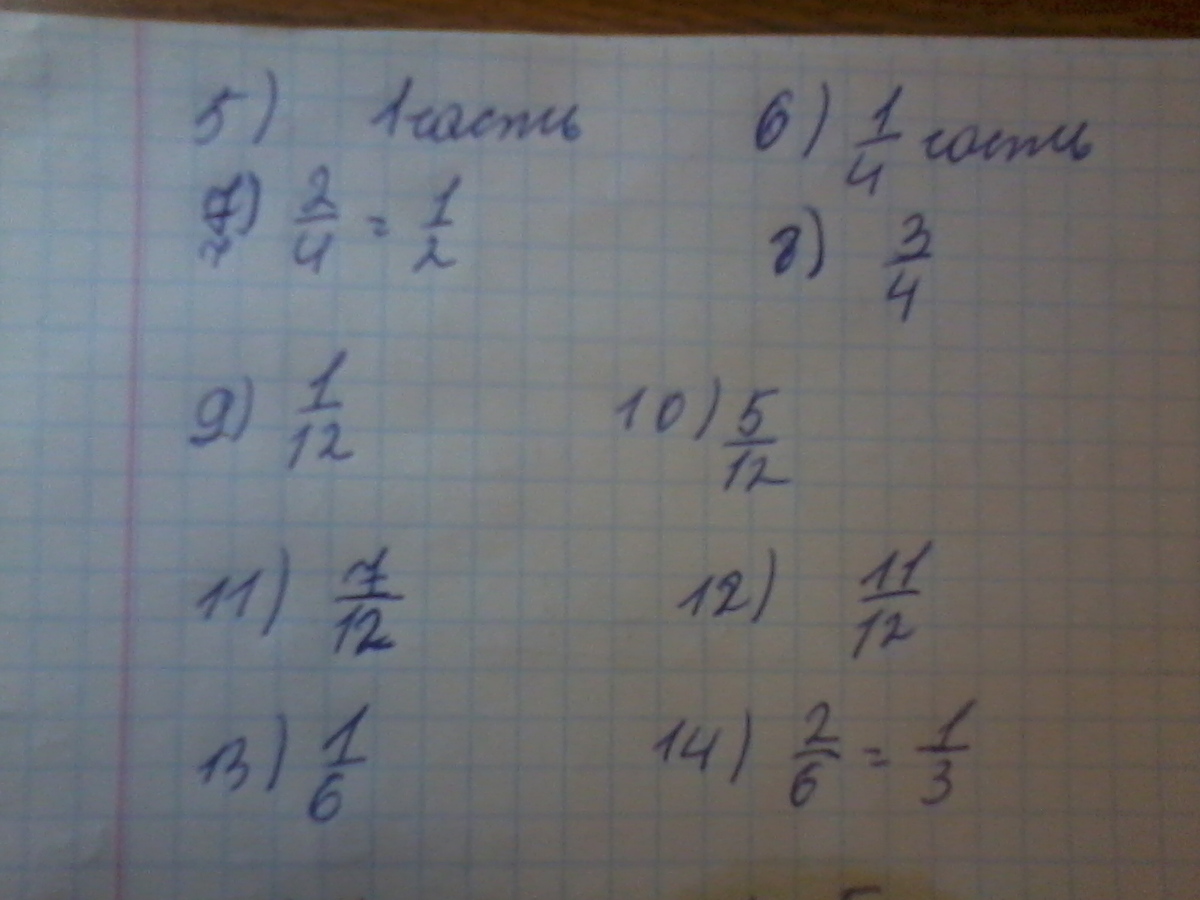 5) 1 часть 6) 1/4 часть
7) 2/4 = 1/2 8) 3/4
9) 1/12 10) 5/12
11) 7/12 12) 11/12
13) 1/6 14) 2/6 = 1/3